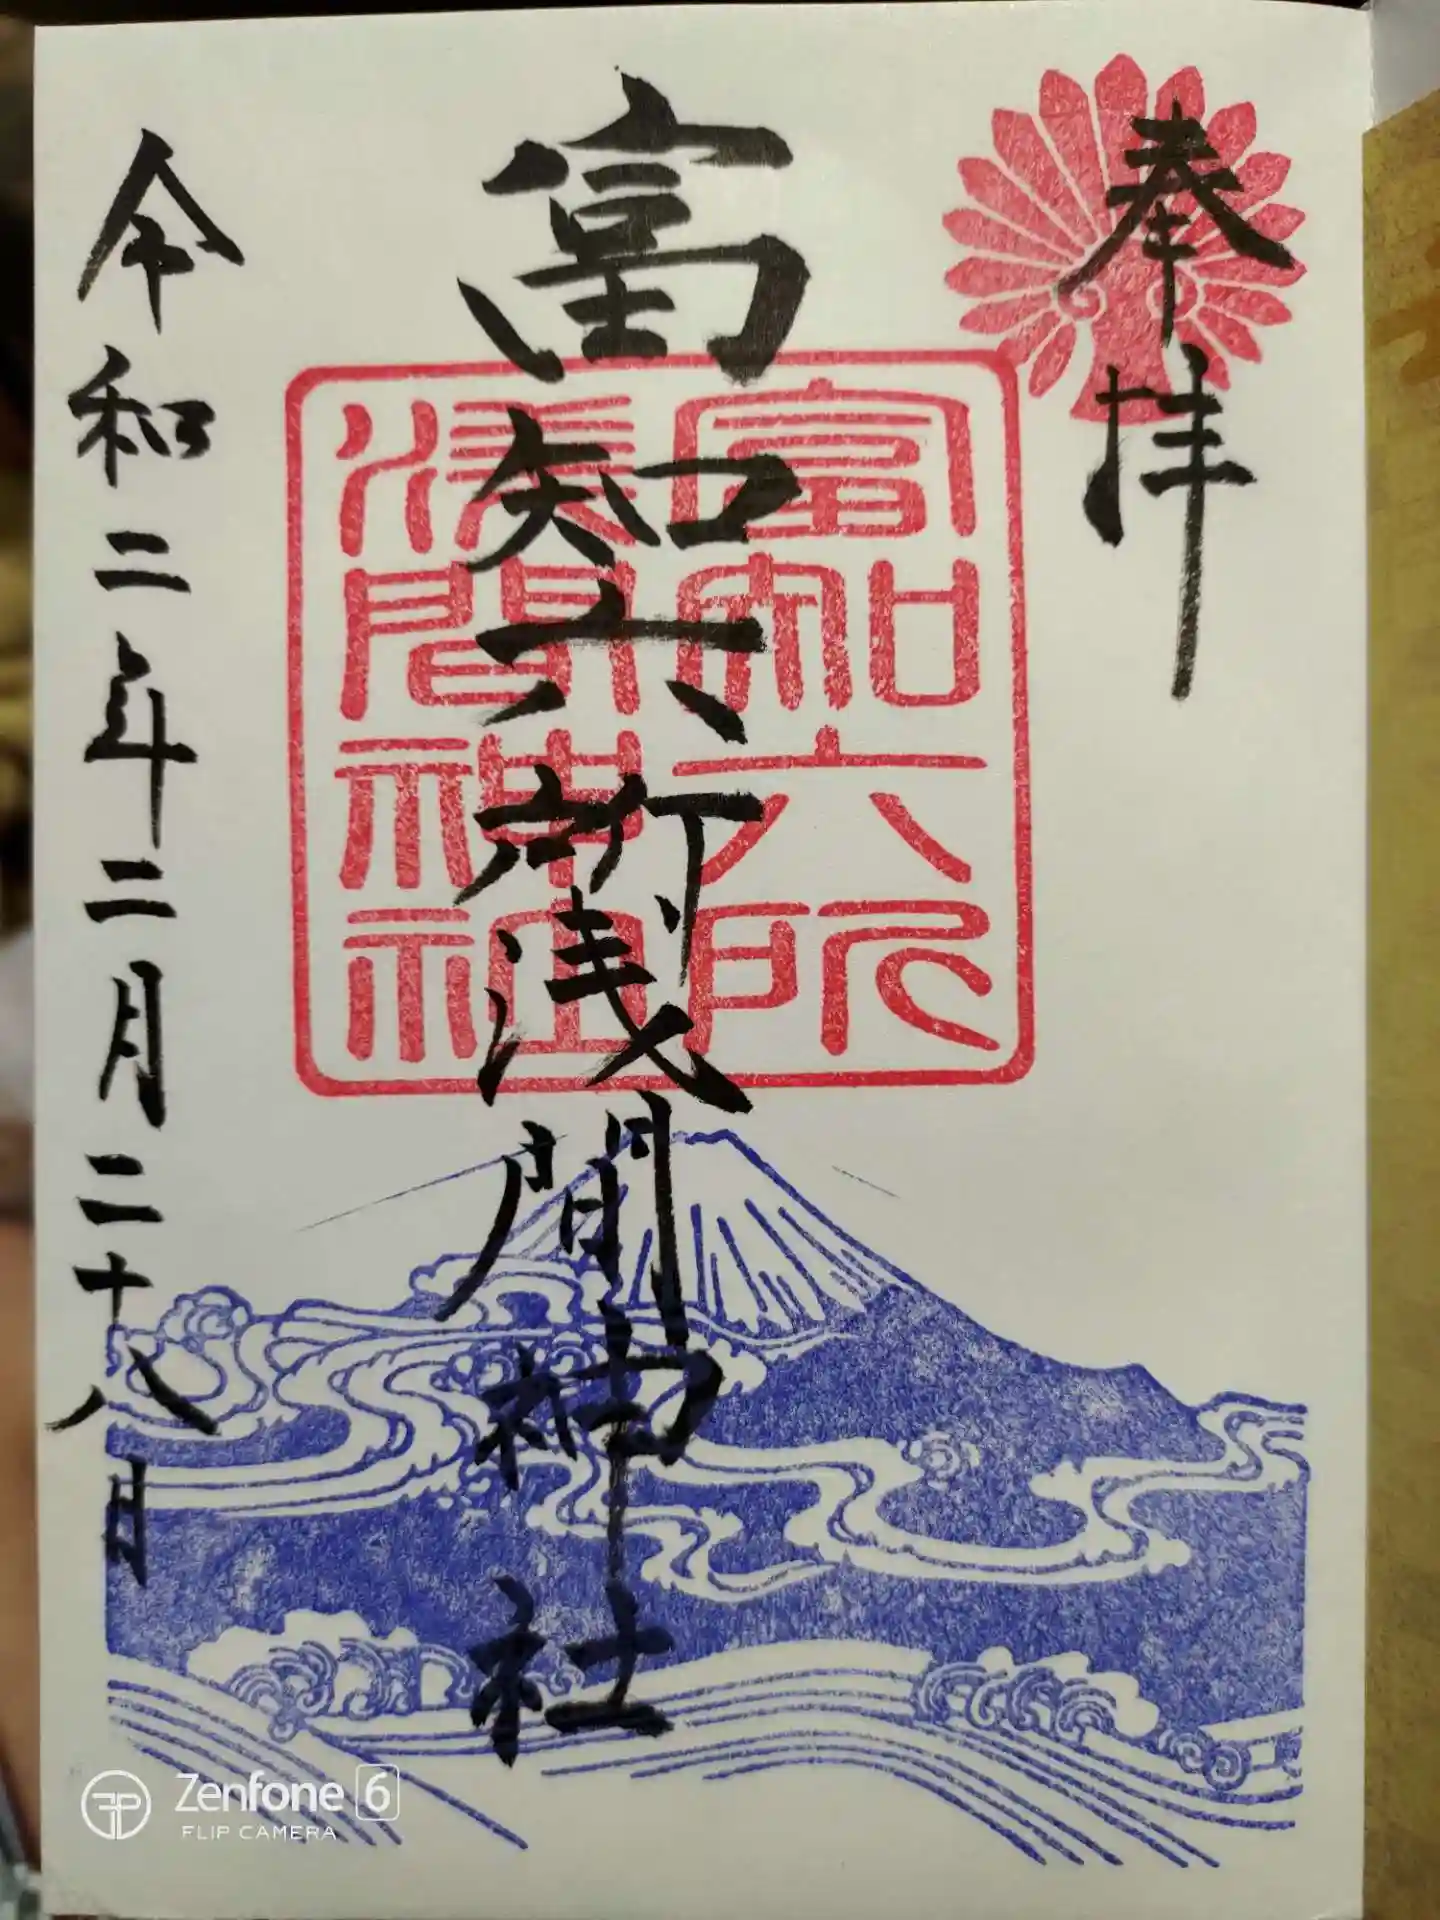 奉拝
富知六所浅間神社
富知六所
浅間神社
令和二年二月二十八日
Zenfone 6
FLIP CAMERA